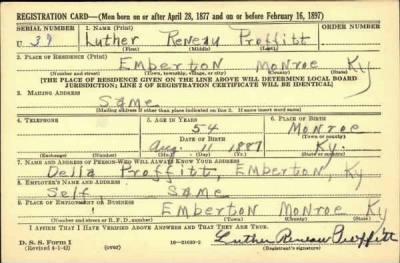 REGISTRATION CARD—(Men born on or after April 28, 1877 and on or before February 16, 1897)
SERIAL NUMBER 1. NAME (Print)
U 39 Luther Reneau Proffitt
(First) (Middle) (Last)
2. PLACE OF RESIDENCE (Print)
Emberton Monroe Ky
(Number and street) (Town, township, village, or city) (County) (State)
[THE PLACE OF RESIDENCE GIVEN ON THE LINE ABOVE WILL DETERMINE LOCAL BOARD
JURISDICTION; LINE 2 OF REGISTRATION CERTIFICATE WILL BE IDENTICAL]
3. MAILING ADDRESS
Same
[Mailing address if other than place indicated on line 2. If same insert word same]
4. TELEPHONE 5. AGE IN YEARS 6. PLACE OF BIRTH
54 Monroe
DATE OF BIRTH (Town or county)
Aug. 11 1887 Ky.
(Exchange) (Number) (Mo.) (Day) (Yr.) (State or country)
7. NAME AND ADDRESS OF PERSON WHO WILL ALWAYS KNOW YOUR ADDRESS
Della Proffitt, Emberton, Ky
8. EMPLOYER'S NAME AND ADDRESS
Self Same
9. PLACE OF EMPLOYMENT OR BUSINESS
Emberton Monroe Ky
(Number and street or R. F. D. number) (Town) (County) (State)
I AFFIRM THAT I HAVE VERIFIED ABOVE ANSWERS AND THAT THEY ARE TRUE.
D. S. S. Form 1 Luther Reneau Proffitt
(Revised 4-1-42) (over) 16—21630-2 (Registrant's signature)